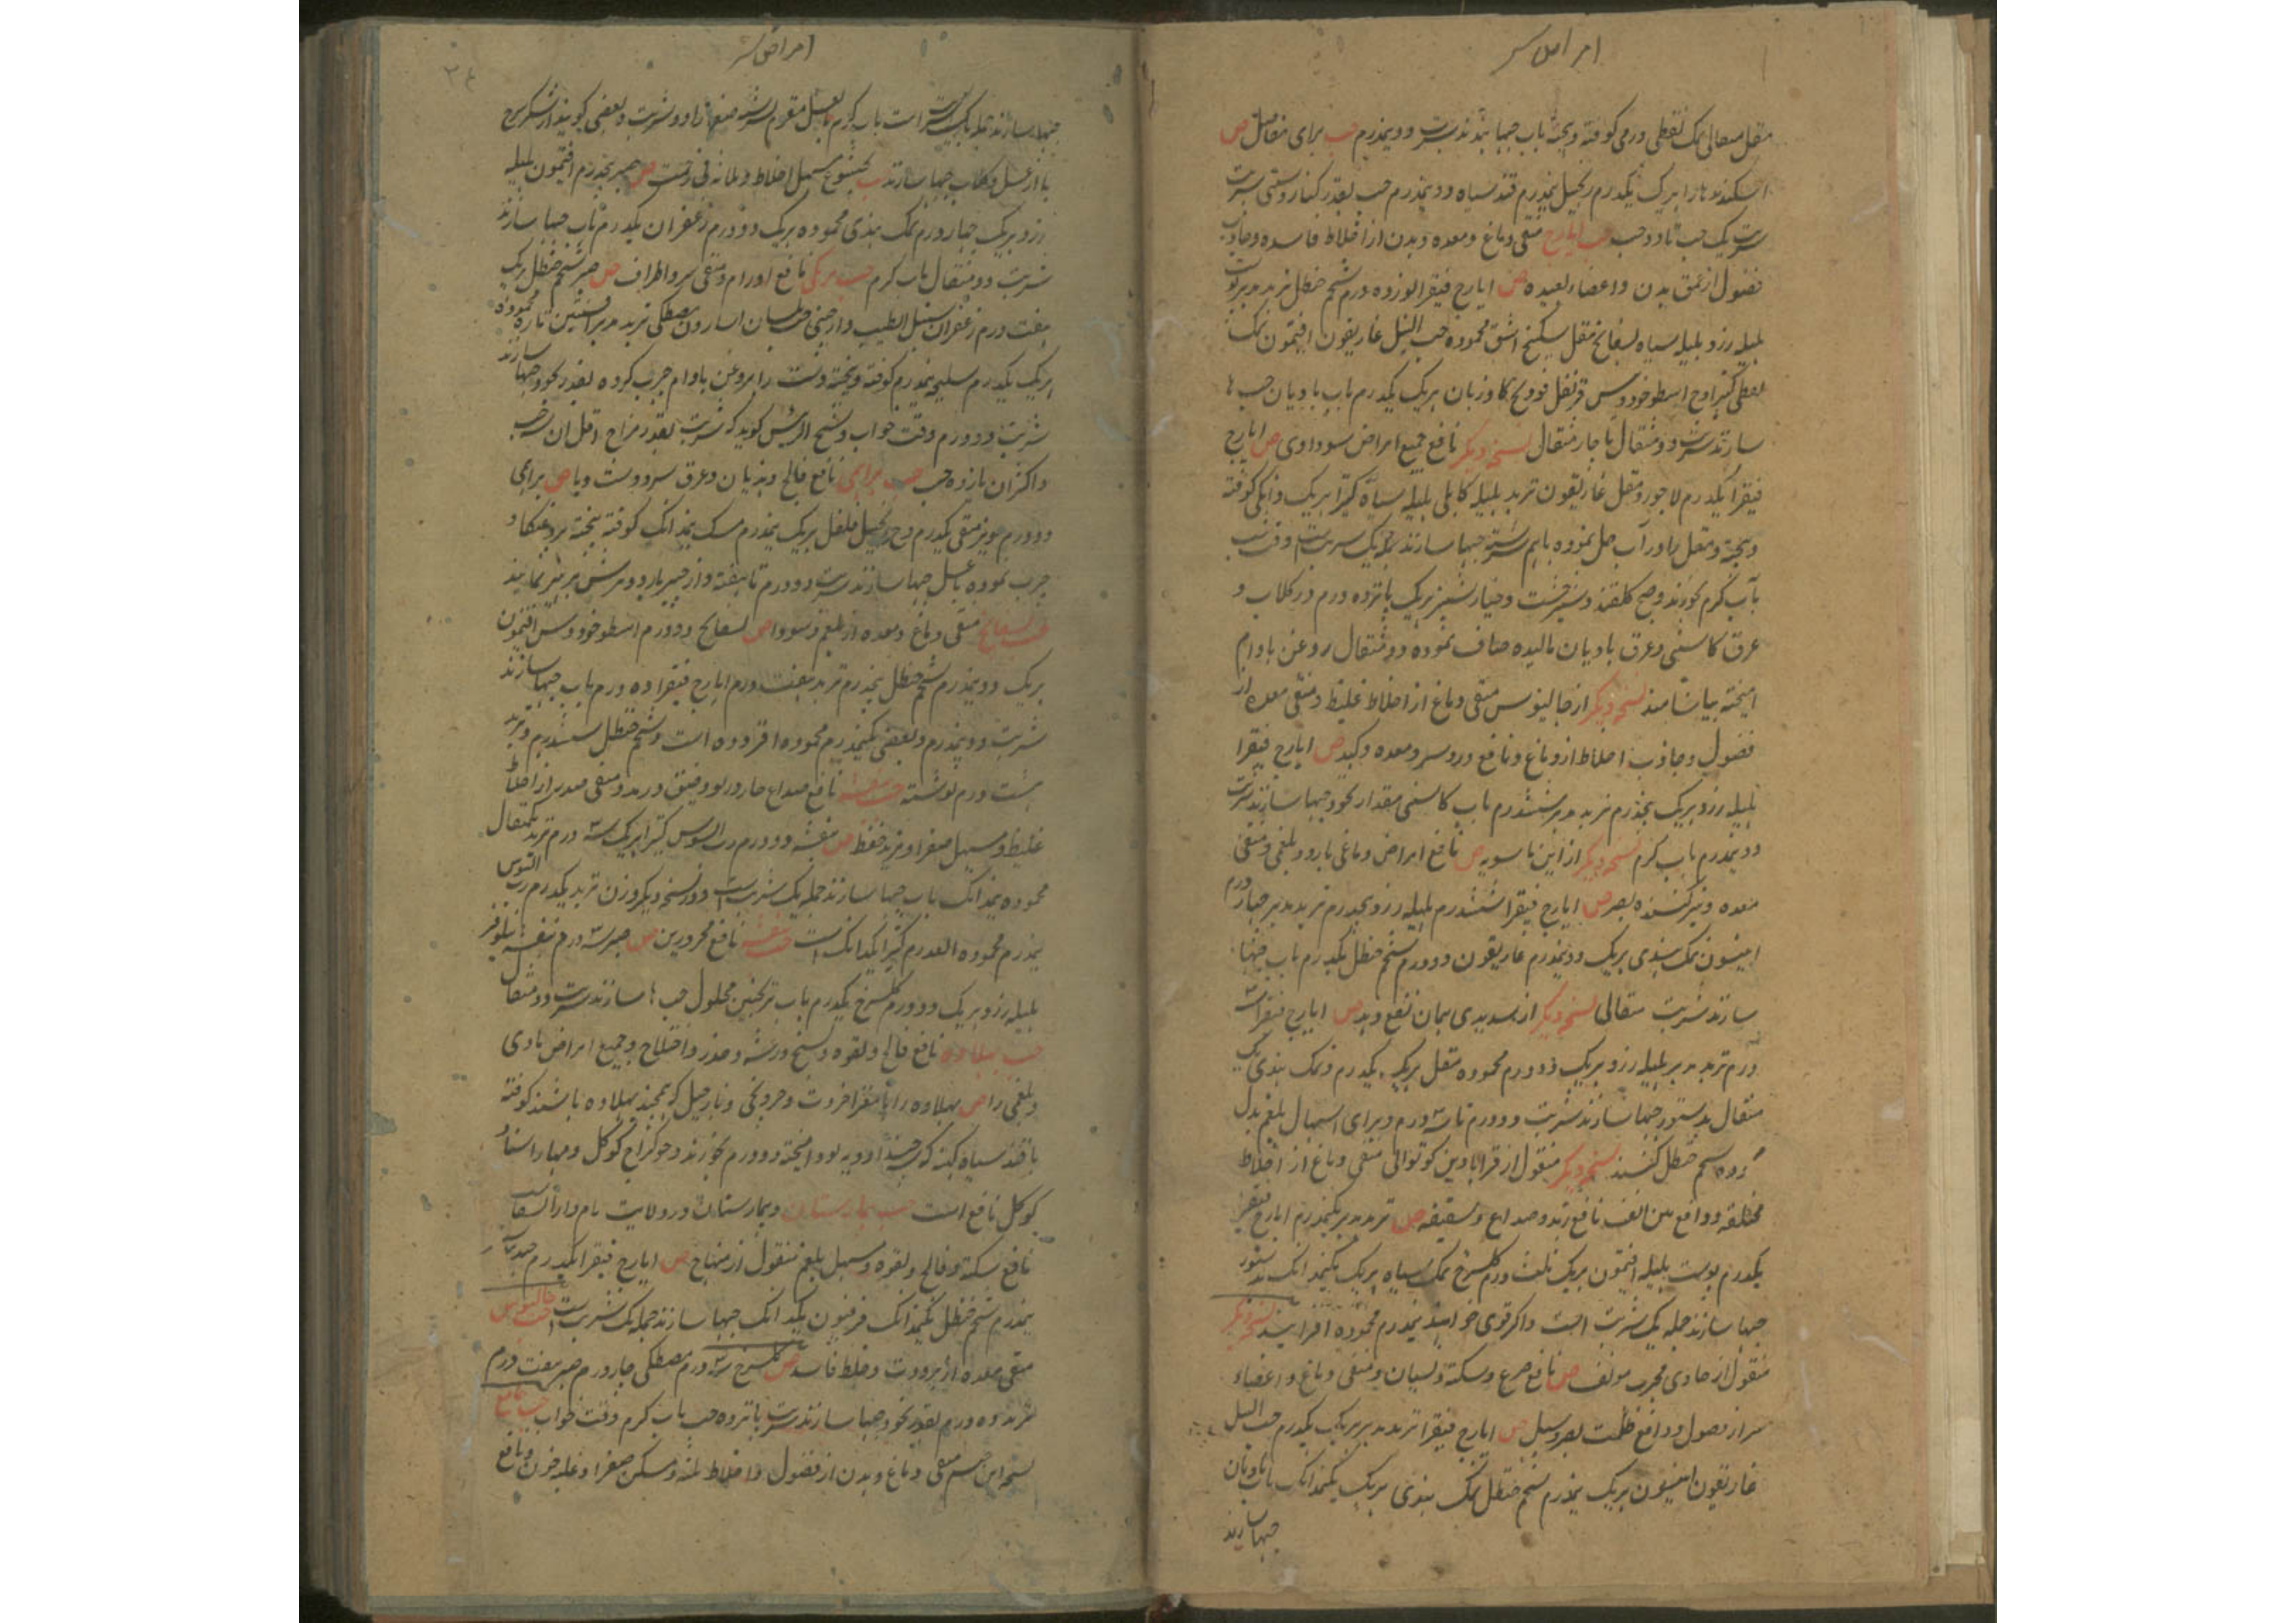 امراض سر
مقل مثقالی نمک نفطی درمی کوفته و بیخته باب حبها بندند شربت دو نیمدرم حب برای مفاصل ص
اسکند نارا بریک یکدرم زنجبیل نیمدرم قند سیاه دو نیمدرم حب بقدر کنار دشتی شربت
شربت یک حب تا دو حب حب ایارج منقی دماغ و معده و بدن از اخلاط فاسده و جاذب
فضول از عمق بدن و اعضاء بعیده ص ایارج فیقرا نوزده درم شحم حنظل تربد مدبر پوست
هلیله زرد هلیله سیاه بسفایج مقل سکبینج اشق محموده حب النیل غاریقون افتیمون نمک
نفطی کتیرا وج اسطوخودوس قرنفل فودنج گاوزبان هریک یکدرم باب بادیان حب ها
سازند شربت دو مثقال تا چار مثقال نسخه دیگر نافع جمیع امراض سوداوی ص ایارج
فیقرا یکدرم لاجورد مقل غاریقون تربد هلیله کابلی هلیله سیاه کتیرا هریک دانکی کوفته
و بیخته و مقل را در آب حل نموده باهم سرشته حبها سازند جمله یک شربت است وقت شب
بآب گرم خورند و صبح گلقند و شیرخشت و خیارشنبر هریک پانزده درم در گلاب و
عرق کاسنی و عرق بادیان مالیده صاف نموده دو مثقال روغن بادام
آمیخته بیاشامند نسخه دیگر از جالینوس منقی دماغ از اخلاط غلیظ و منقی معده از
فضول و جاذب اخلاط از دماغ و نافع درد سر و معده و کبد ص ایارج فیقرا
هلیله زرد هریک پنجدرم تربد مدبر ششدرم باب کاسنی مقدار نخود حبها سازند شربت
دو نیمدرم باب گرم نسخه دیگر از ابن ماسویه ص نافع امراض دماغی بارد و بلغمی و منقی
معده و تیز کننده بصر ص ایارج فیقرا ششدرم هلیله زرد پنجدرم تربد مدبر چهار درم
انیسون نمک هندی هریک دو نیمدرم غاریقون دو درم شحم حنظل یکدرم باب حبها
سازند شربت مثقالی نسخه دیگر از سدیدی بهمان نفع و بد ص ایارج فیقرا سه
درم تربد مدبر هلیله زرد هریک دو درم محموده مقل هریک یکدرم و نمک هندی یک
مثقال بدستور حبها سازند شربت دو درم تا سه درم و برای اسهال بلغم بدل
شحم حنظل کنند نسخه دیگر منقول از قرابادین منقی دماغ از اخلاط
مختلفه و دافع نافع رمد و صداع و شقیقه ص تربد مدبر یکنیمدرم ایارج فیقرا
یکدرم پوست هلیله افتیمون هریک ثلث درم گلسرخ نمک سیاه هریک یکنیمدانک بدستور
حبها سازند جمله یک شربت است و اگر قوی خواهند نیمدرم محموده افزایند نسخه دیگر
منقول از حاوی مجرب مولف ص نافع صرع و سکته و نسیان و منقی دماغ و اعضاء
سر از فضول و دافع ظلمت بصر و سبل ص ایارج فیقرا تربد مدبر هریک یکدرم حب النیل
غاریقون انیسون هریک نیمدرم شحم حنظل نمک هندی هریک یکنیمدانک باب بادیان
حبها سازند
امراض سر
۲۶
حبها سازند جمله یک شربت است باب گرم بعسل مقوم سرشته و شربت و بعضی گویند از شکر سرخ
یا از عسل و گلاب حبها سازند حب بختیشوع مسهل اخلاط ص صبر پنجدرم افتیمون هلیله
زرد هریک چهار درم نمک هندی محموده هریک دو درم زعفران یکدرم باب حبها سازند
شربت دو مثقال باب گرم حب برمکی نافع اورام و منقی سر و اطراف ص صبر شحم حنظل هریک
هفت درم زعفران سنبل الطیب دارچینی حب بلسان اسارون مصطکی تربد مدبر افسنتین محموده
هریک یکدرم سلیخه نیمدرم کوفته و بیخته دست را بروغن بادام چرب کرده بقدر نخود حبها سازند
شربت دو درم وقت خواب و شیخ الرئیس گوید که شربت بقدر مزاج اقل آن نه حب
و اکثر آن یازده حب حب برای نافع فالج و هذیان و عرق سر و دست و پا ص
دو درم مویز منقی یکدرم وج زنجبیل فلفل هریک نیمدرم مسک نیمدانک کوفته بیخته بروغن گاو
چرب نموده با عسل حبها سازند شربت دو درم تا هفته و از چیز بارد و ترش پرهیز نمایند
حب بسفایج منقی دماغ و معده از بلغم و سودا ص بسفایج دو درم اسطوخودوس افتیمون
هریک دو نیمدرم شحم حنظل نیمدرم تربد هفت درم ایارج فیقرا ده درم باب حبها سازند
شربت دو نیمدرم و بعضی یکنیمدرم محموده افزوده است و شحم حنظل سه درم و تربد
هشت درم نوشته حب بنفشه نافع صداع حار و ربو و ضیق و رمد و منقی صدر از اخلاط
غلیظ و مسهل صفرا ص بنفشه دو درم رب السوس کتیرا هریک سه درم تربد یکمثقال
محموده نیمدانک باب حبها سازند جمله یک شربت است و در نسخه دیگر وزن تربد یکدرم رب السوس
نیمدرم محموده کتیرا یکدانک است حب بنفشه نافع محرورین ص صبر سه درم بنفشه نیلوفر
هلیله زرد هریک دو درم گلسرخ یکدرم باب ترنجبین محلول حب ها سازند شربت دو مثقال
حب بهلاوه نافع فالج و لقوه و تشنج و رعشه و خدر و اختلاج و جمیع امراض بادی
و بلغمی را ص بهلاوه را با مغز اخروت و چرونجی و نارجیل که همچند بهلاوه باشند کوفته
با قند سیاه کهنه که همچند ادویه بود آمیخته دو درم بخورند
گوگل نافع است حب بیمارستان و بیمارستان در ولایت نام دارالشفاست
نافع سکته و فالج و لقوه و مسهل بلغم منقول از منهاج ص ایارج فیقرا یکدرم
نیمدرم شحم حنظل یکنیمدانک فرفیون یکدانک حبها سازند جمله یک شربت است حب جالینوس
منقی معده از برودت و خلط فاسد ص گلسرخ سه درم مصطکی چار درم صبر هفت درم
تربد ده درم بقدر نخود حبها سازند شربت پانزده حب باب گرم وقت خواب حب جامع
منقی دماغ و بدن از فضول و اخلاط ثلثه و مسکن صفرا و غلبه خون و نافع